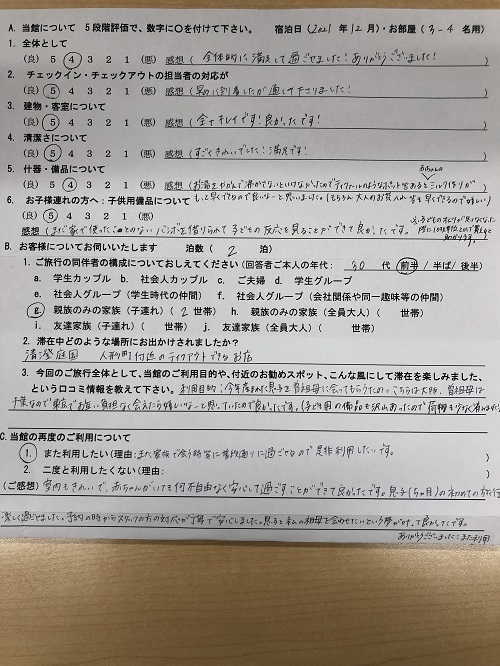 A. 当館について 5段階評価で、数字に○を付けて下さい。 宿泊日(2021 年 12 月)・お部屋(3-4 名用)
1. 全体として
(良) 5 4 3 2 1 (悪) 感想(全体的に満足して過ごせました!ありがとうございました!)
2. チェックイン・チェックアウトの担当者の対応が
(良) 5 4 3 2 1 (悪) 感想(早めに到着したが通して下さりました!)
3. 建物・客室について
(良) 5 4 3 2 1 (悪) 感想(全てキレイです!良かったです!)
4. 清潔さについて
(良) 5 4 3 2 1 (悪) 感想(すごくきれいでした!満足です!)
5. 什器・備品について
赤ちゃんの
(良) 5 4 3 2 1 (悪) 感想(お湯をやかんで沸かさないといけなかったのでティファールのようなポットがあるとミルク作りが
6. お子様連れの方へ:子供用備品について もっと早くできるので良いなーと思いました。(もちろん大人のお茶入れ
(良) 5 4 3 2 1 (悪)
感想(まだ家で使ったことのないバンボを借りられて子どもの反応を見ることができて良かったです。
B. お客様についてお伺いいたします 泊数( 2 泊)
1. ご旅行の同伴者の構成についておしえてください(回答者ご本人の年代: 30 代 前半/半ば/後半)
a. 学生カップル b. 社会人カップル c. ご夫婦 d. 学生グループ
e. 社会人グループ(学生時代の仲間) f. 社会人グループ(会社関係や同一趣味等の仲間)
g. 親族のみの家族(子連れ)( 2 世帯) h. 親族のみの家族(全員大人)( 世帯)
i. 友達家族(子連れ)( 世帯) j. 友達家族(全員大人)( 世帯)
2. 滞在中どのような場所にお出かけされましたか?
清澄庭園 人形町付近のテイクアウトできるお店
3. 今回のご旅行全体として、当館のご利用目的や、付近のお勧めスポット、こんな風にして滞在を楽しみました、
という口コミ情報を教えて下さい。利用目的:今年産まれた息子を曽祖母に会ってもらうため。こちらは大阪、曽祖母は
千葉なので東京でお互い負担なく会えたら嬉しいなーと思っていたので良かったです。(子ども用の備品も沢山あったので荷物も少なく
C. 当館の再度のご利用について
1. また利用したい(理由:また家族で会う時等に普段通りに過ごせるので是非利用したいです。)
2. 二度としたくない(理由: )
(ご感想) 室内もきれいで、赤ちゃんがいても何不自由なく安心して過ごすことができて良かったです。息子(5ヶ月)の初めての旅行
楽しく過ごせました。予約の時からスタッフの方の対応が丁寧で安心しました。息子と私の祖母を会わせたいという夢が叶って良かったです。
ありがとうございました!また利用